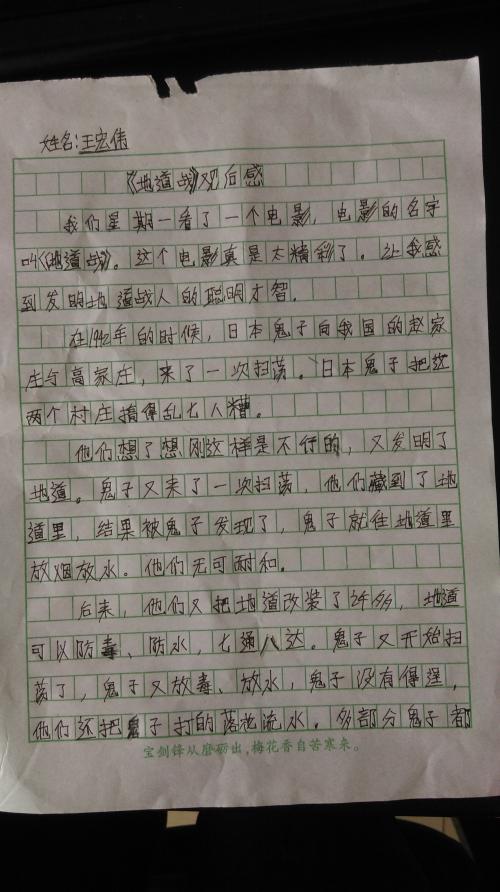 姓名:王宏伟
《地道战》观后感
我们星期一看了一个电影，电影的名字
叫《地道战》。这个电影真是太精彩了。让我感
到发明地道战人的聪明才智。
在1942年的时候，日本鬼子向我国的赵家
庄与高家庄，来了一次扫荡。日本鬼子把这
两个村庄搞得乱七八糟。
他们想了想刚这样是不行的，又发明了
地道。鬼子又来了一次扫荡，他们藏到了地
道里，结果被鬼子发现了，鬼子就往地道里
放烟放水。他们无可耐和。
后来，他们又把地道改装了许多，地道
可以防毒、防水，七通八达。鬼子又开始扫
荡了，鬼子又放毒、放水，鬼子没有得逞，
他们还把鬼子打的落花流水。多部分鬼子都
宝剑锋从磨砺出，梅花香自苦寒来。